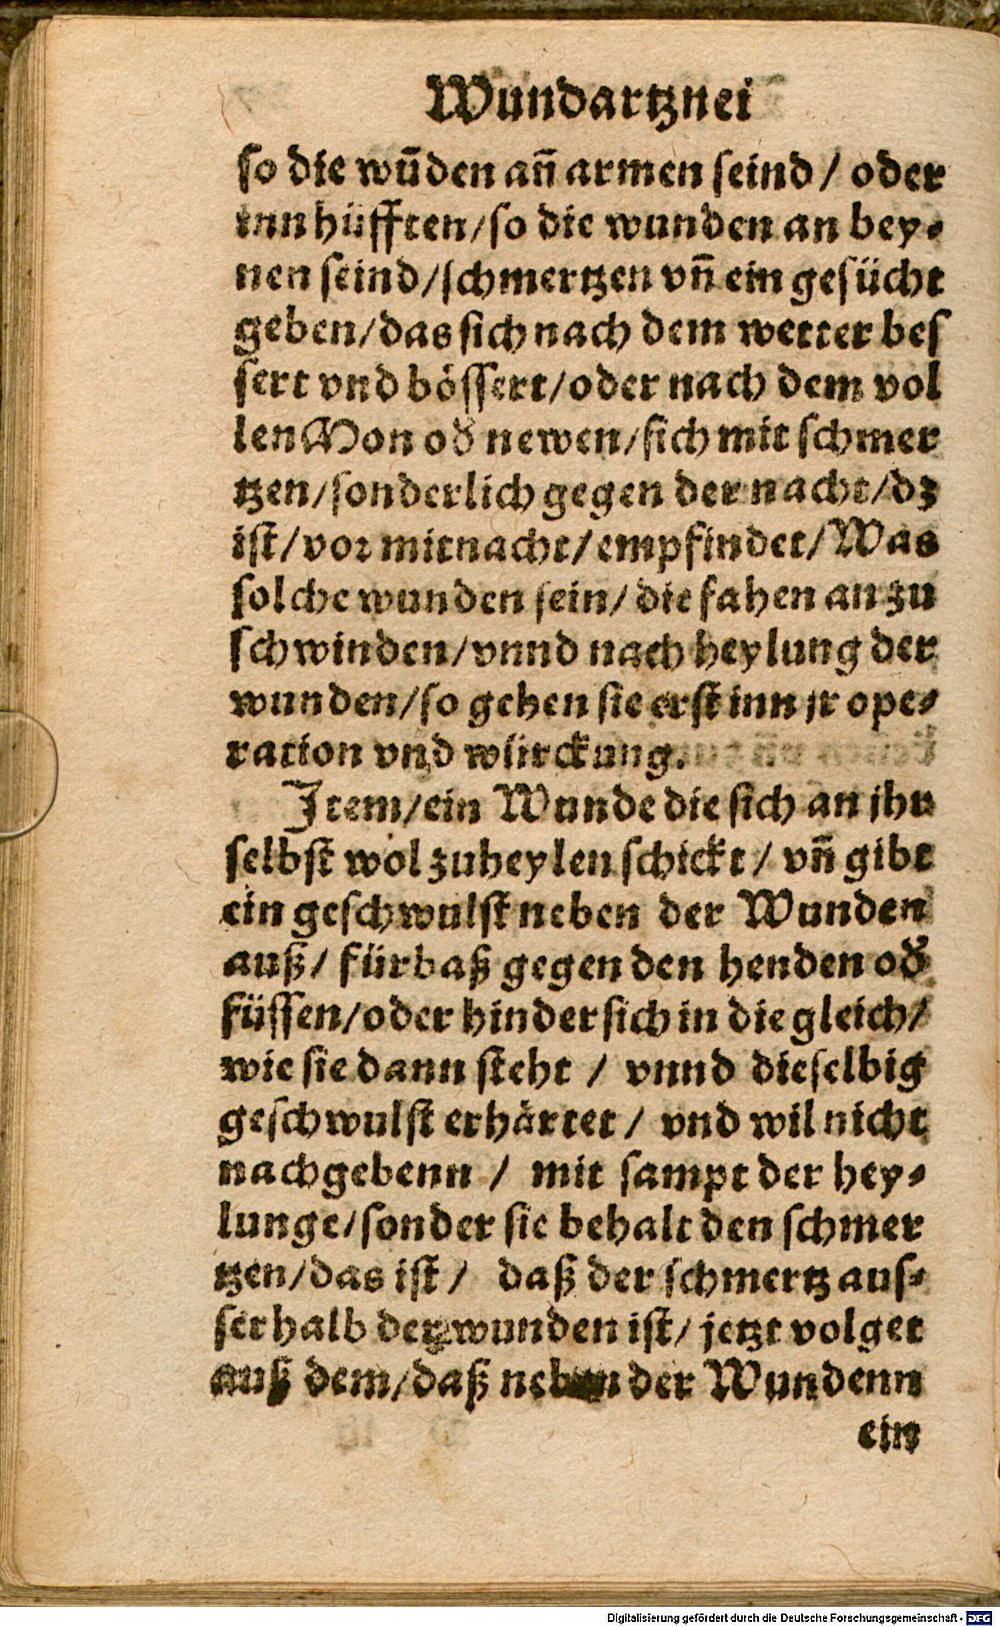 Wundartznei
so die wūden an̄ armen seind / oder
inn hüfften/so die wunden an bey⸗
nen seind/schmertzen vn̄ ein gesücht
geben/das sich nach dem wetter bes
sert vnd bössert/oder nach dem vol
len Mon oď newen/sich mit schmer
tzen/sonderlich gegen der nacht/dz
ist/vor mitnacht/empfindet/Was
solche wunden sein/ die fahen an zu
schwinden/vnnd nach heylung der
wunden/so gehen sie erst inn jr ope⸗
ration vnd würckung.
Item/ein Wunde die sich an jhr
selbst wol zuheylen schickt / vn̄ gibt
ein geschwulst neben der Wunden
auß/ fürbaß gegen den henden oď
füssen/oder hindersich in die gleich/
wie sie dann steht / vnnd dieselbig
geschwulst erhärtet / vnd wil nicht
nachgebenn / mit sampt der hey⸗
lunge/sonder sie behalt den schmer
tzen/das ist / daß der schmertz aus⸗
serhalb der wunden ist/ jetzt volget
auß dem/daß neben der Wundenn
ein
Digitalisierung gefördert durch die Deutsche Forschungsgemeinschaft - DFG